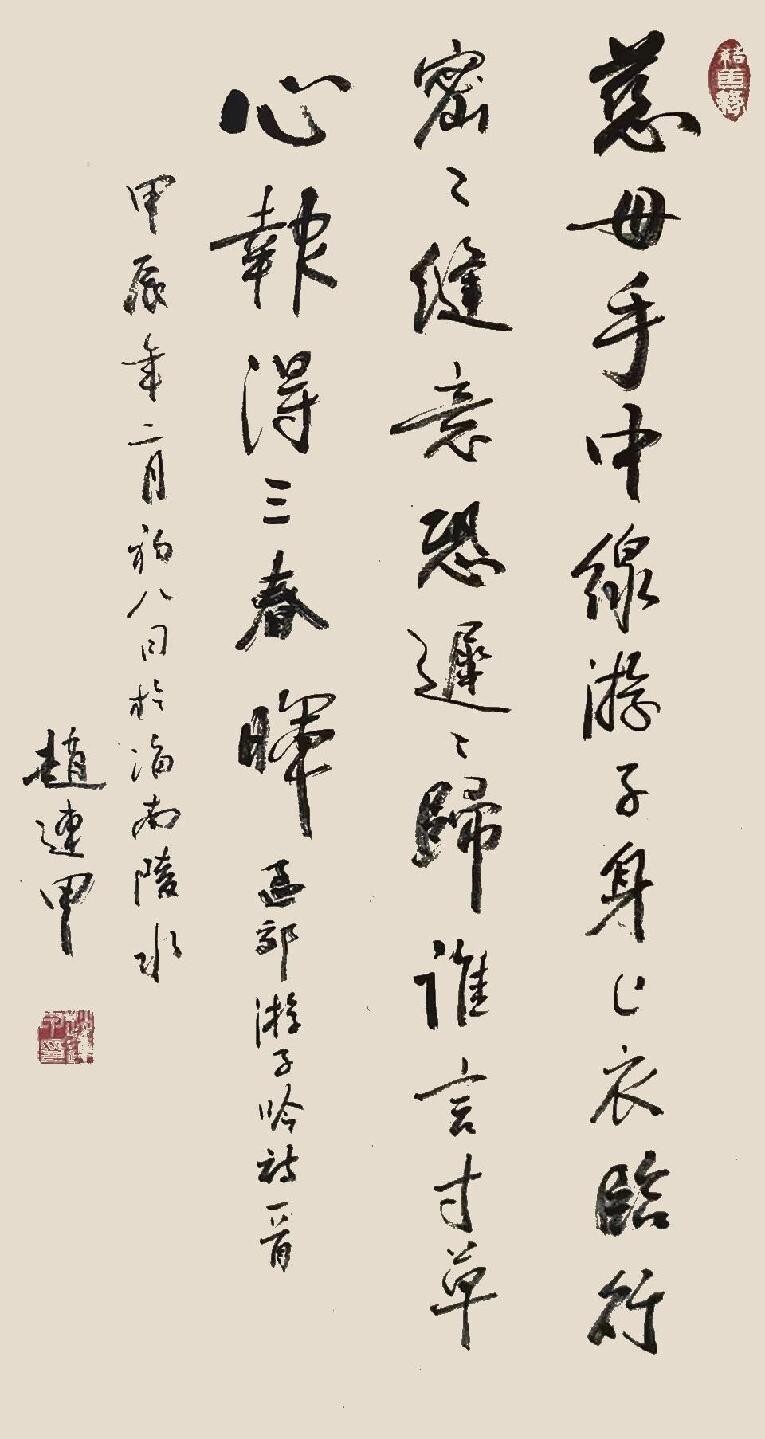 結墨緣
慈母手中線游子身上衣臨行
密〻縫意恐遲〻歸誰言寸草
心報得三春暉 孟郊游子吟詩一首
甲辰年二月初八日於海南陵水
趙連甲